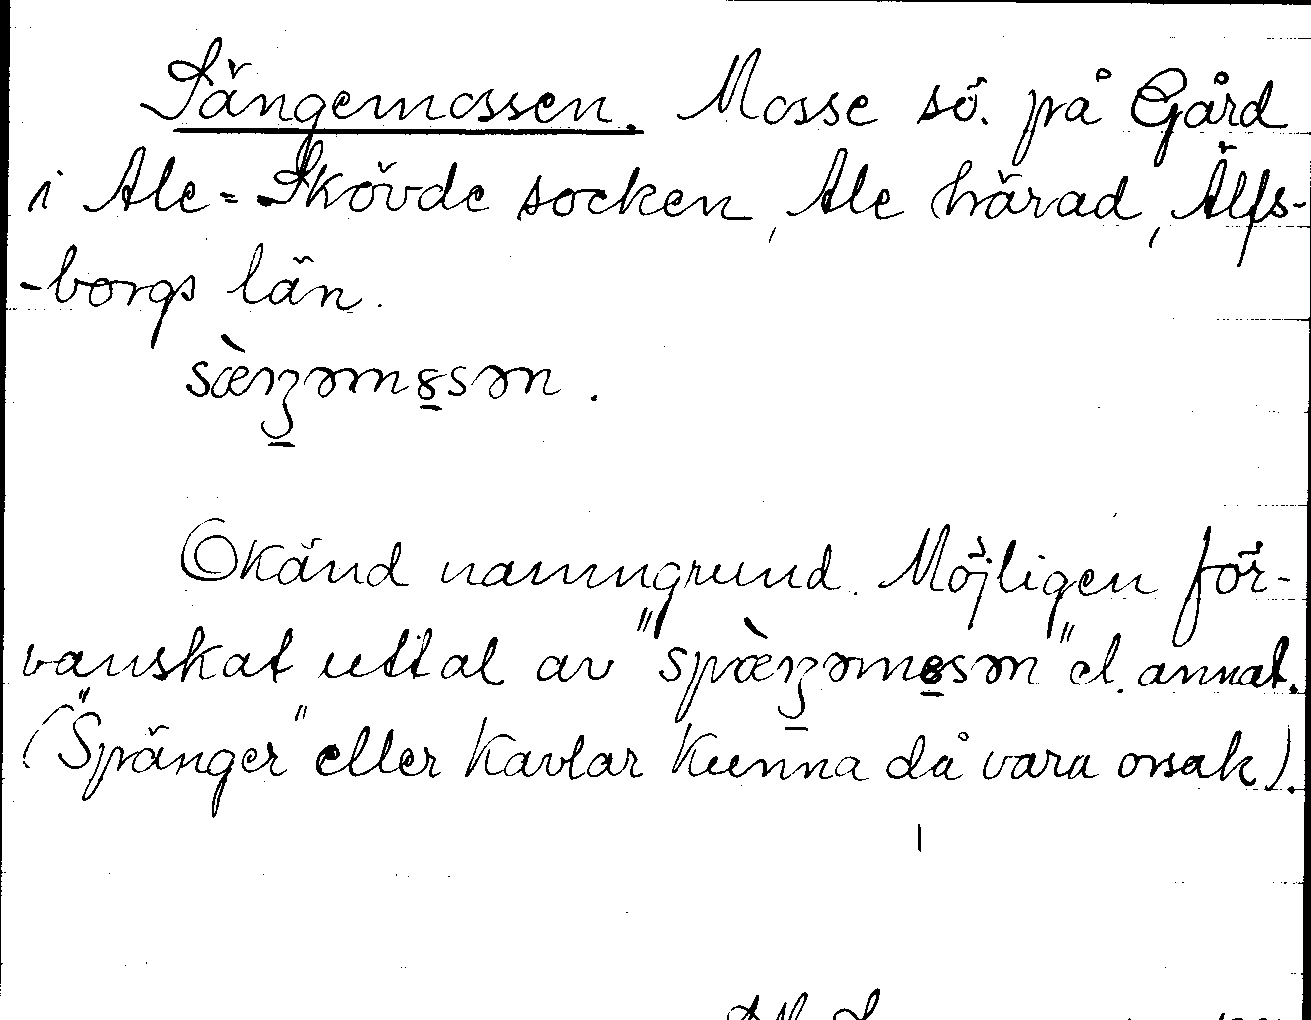 Sängemossen. Mosse sö. på Gård
i Ale-Skövde socken, Ale härad, Älfs-
-borgs län.
sæ̀ŋəmo̱sən.
Okänd namngrund. Möjligen för-
vanskat uttal av "spæ̀ŋəmo̱sən" el. annat.
("Spänger" eller kavlar kunna då vara orsak).